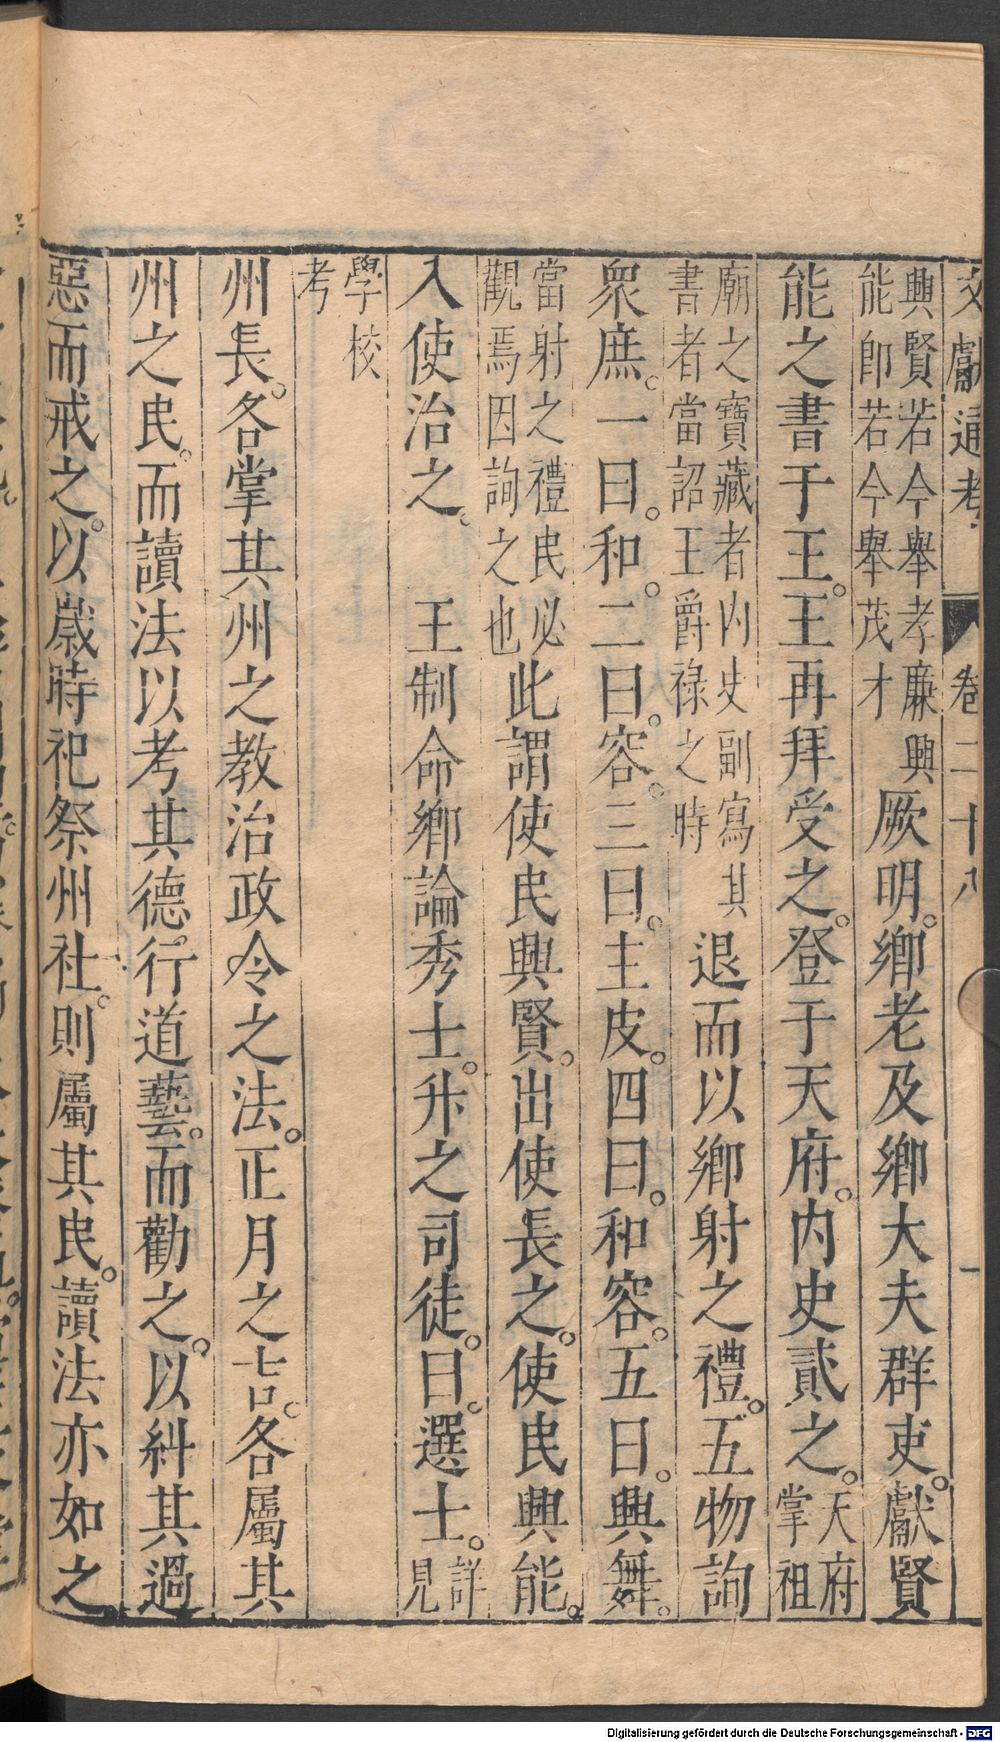 文獻通考 卷二十八
興賢若今舉孝廉興
能即若今舉茂才
厥明。鄉老及鄉大夫群吏。獻賢
能之書于王。王再拜受之。登于天府。内史貳之。
天府
掌祖
廟之寶藏者内史副寫其
書者當詔王爵祿之時
退而以鄉射之禮。五物詢
衆庶。一曰。和。二曰。容。三曰。主皮。四曰。和容。五曰。興舞。
當射之禮民必
觀焉因詢之也
此謂使民興賢。出使長之。使民興能。
入使治之。 王制命鄉論秀士。升之司徒。曰。選士。
詳
見
學校
考
州長。各掌其州之教治政令之法。正月之吉。各屬其
州之民。而讀法以考其德。行道藝。而勸之。以糾其過
惡而戒之。以歲時祀祭州社。則屬其民。讀法亦如之
Digitalisierung gefördert durch die Deutsche Forschungsgemeinschaft - DFG